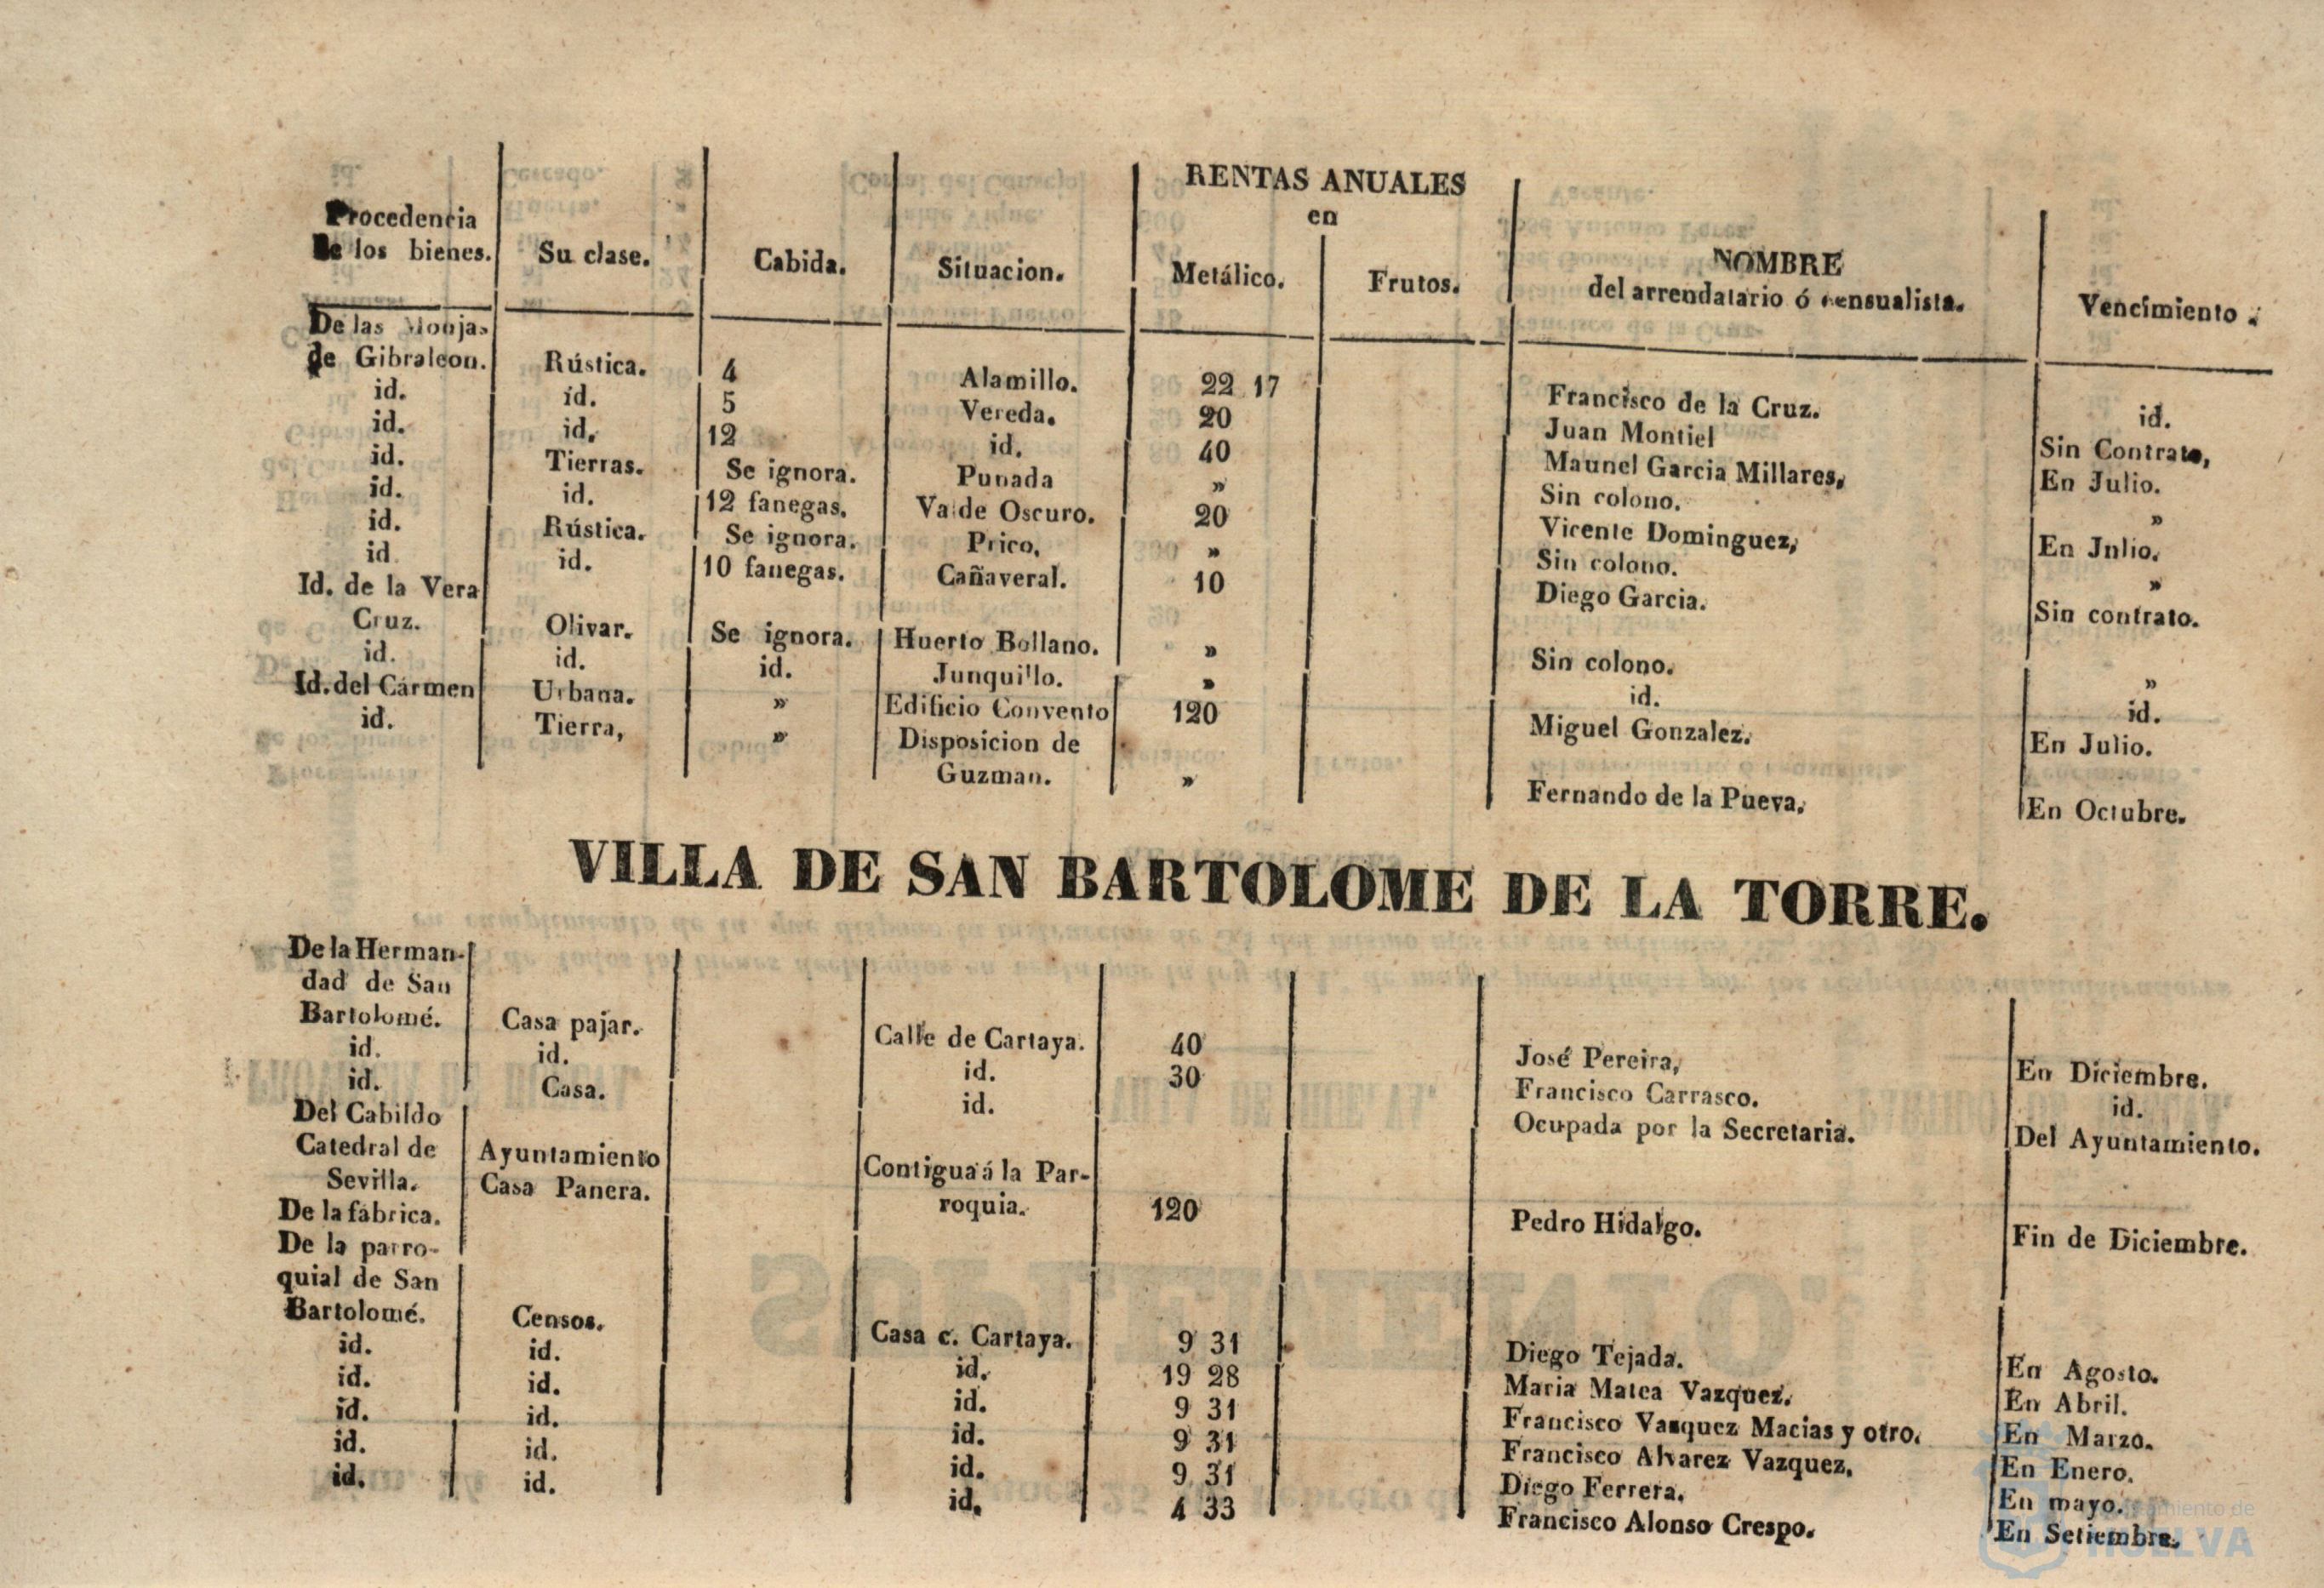 RENTAS ANUALES
en
Procedencia de los bienes. Su clase. Cabida. Situacion. Metálico. Frutos. NOMBRE del arrendatario ó censualista. Vencimiento.
De las Monjas
de Gibraleon. Rústica. 4 Alamillo. 22 17 Francisco de la Cruz. id.
id. id. 5 Vereda. 20 Juan Montiel Sin Contrato,
id. id. 12 id. 40 Maunel Garcia Millares, En Julio.
id. Tierras. Se ignora. Punada » Sin colono. »
id. id. 12 fanegas. Valde Oscuro. 20 Vicente Dominguez, En Jnlio.
id. Rústica. Se ignora. Prico, » Sin colono. »
id id. 10 fanegas. Cañaveral. 10 Diego Garcia. Sin contrato.
Id. de la Vera
Cruz. Olivar. Se ignora. Huerto Bollano. » Sin colono. »
id. id. id. Junquillo. » id. id.
Id. del Cármen Urbana. » Edificio Convento 120 Miguel Gonzalez. En Julio.
id. Tierra, » Disposicion de
Guzman. » Fernando de la Pueva. En Octubre.
VILLA DE SAN BARTOLOME DE LA TORRE.
De la Herman-
dad de San
Bartolomé. Casa pajar. Calle de Cartaya. 40 José Pereira, En Diciembre.
id. id. id. 30 Francisco Carrasco. id.
id. Casa. id. Ocupada por la Secretaria. Del Ayuntamiento.
Del Cabildo
Catedral de Ayuntamiento Contigua á la Par-
Sevilla. Casa Panera. roquia. 120 Pedro Hidalgo. Fin de Diciembre.
De la fábrica.
De la parro-
quial de San
Bartolomé. Censos. Casa c. Cartaya. 9 31 Diego Tejada. En Agosto.
id. id. id. 19 28 Maria Matea Vazquez. En Abril.
id. id. id. 9 31 Francisco Vazquez Macias y otro. En Marzo.
id. id. id. 9 31 Francisco Alvarez Vazquez. En Enero.
id. id. id. 9 31 Diego Ferrera. En mayo.
id. id. id. 4 33 Francisco Alonso Crespo. En Setiembre.
HUELVA